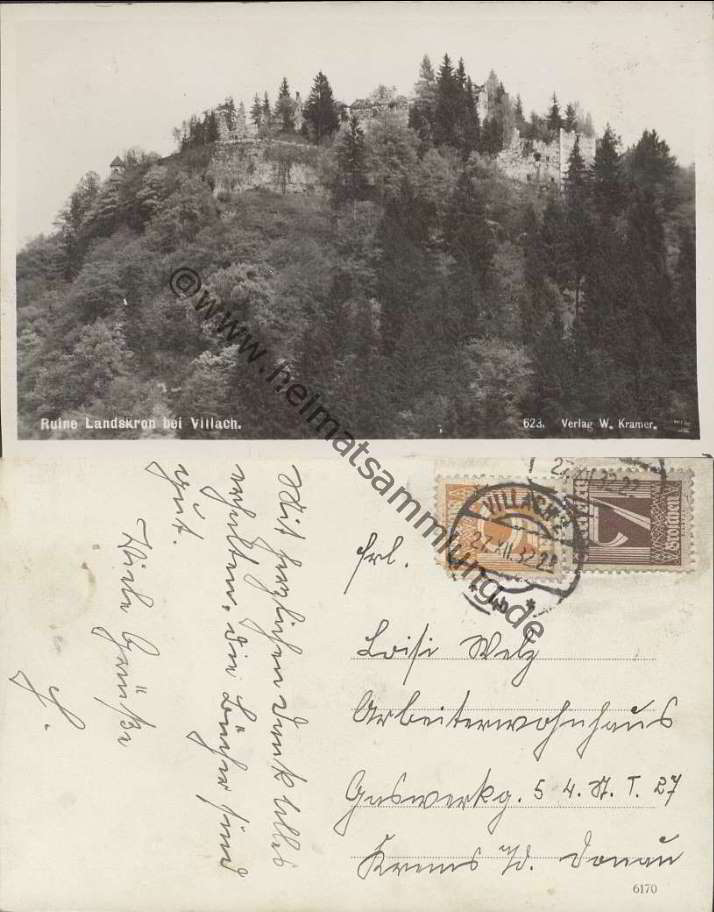 Ruine Landskron bei Villach.
623. Verlag W. Kramer.
©www.heimatsammlung.de
Mit herzlichen Dank alles
erhalten, die Bücher sind
gut.
Viele Grüße
L.
VILLACH 2
27.XII.32.22
Groschen
Frl.
Loisi Welz
Arbeiterwohnhaus
Gaswerkg. 5 4. St. T. 27
Krems a/d. Donau
6170